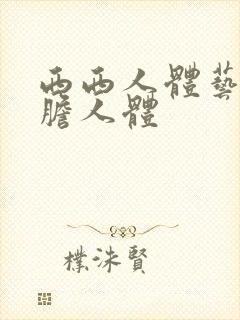 西西人體藝
膽人體
樸洙賢